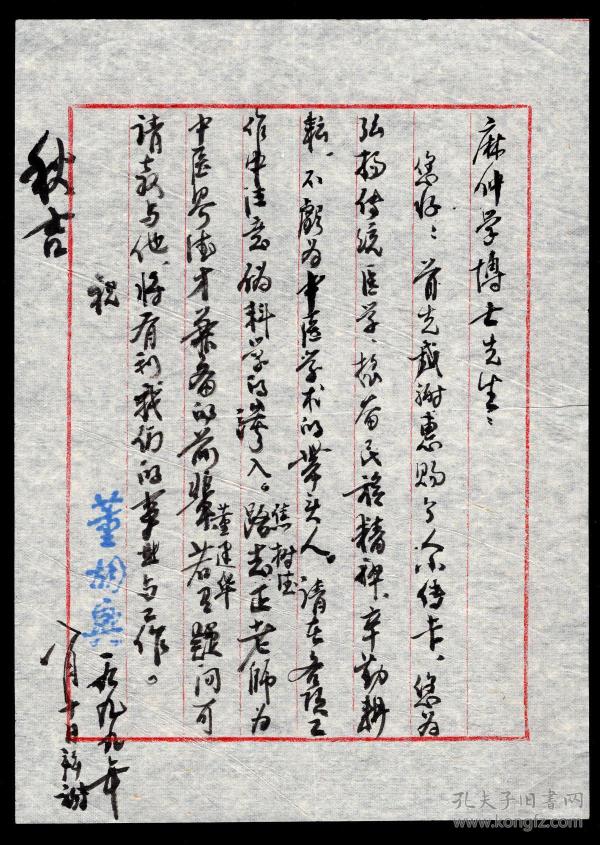 麻仲学博士先生：
您好：首先感谢惠赐个人小传卡、您为
弘扬传统医学、振奋民族精神、辛勤耕
耘、不亏为中医学术的带头人。请在各项工
作中注意偽科学的入。路志正老师为
焦树德
董建华
中医界德才兼备的前辈若有疑问可
请教与他、将有利我们的事业与工作。
祝
秋吉
董胡兴
一九九九年
八月十日
孔夫子旧书网
www.kongfz.com